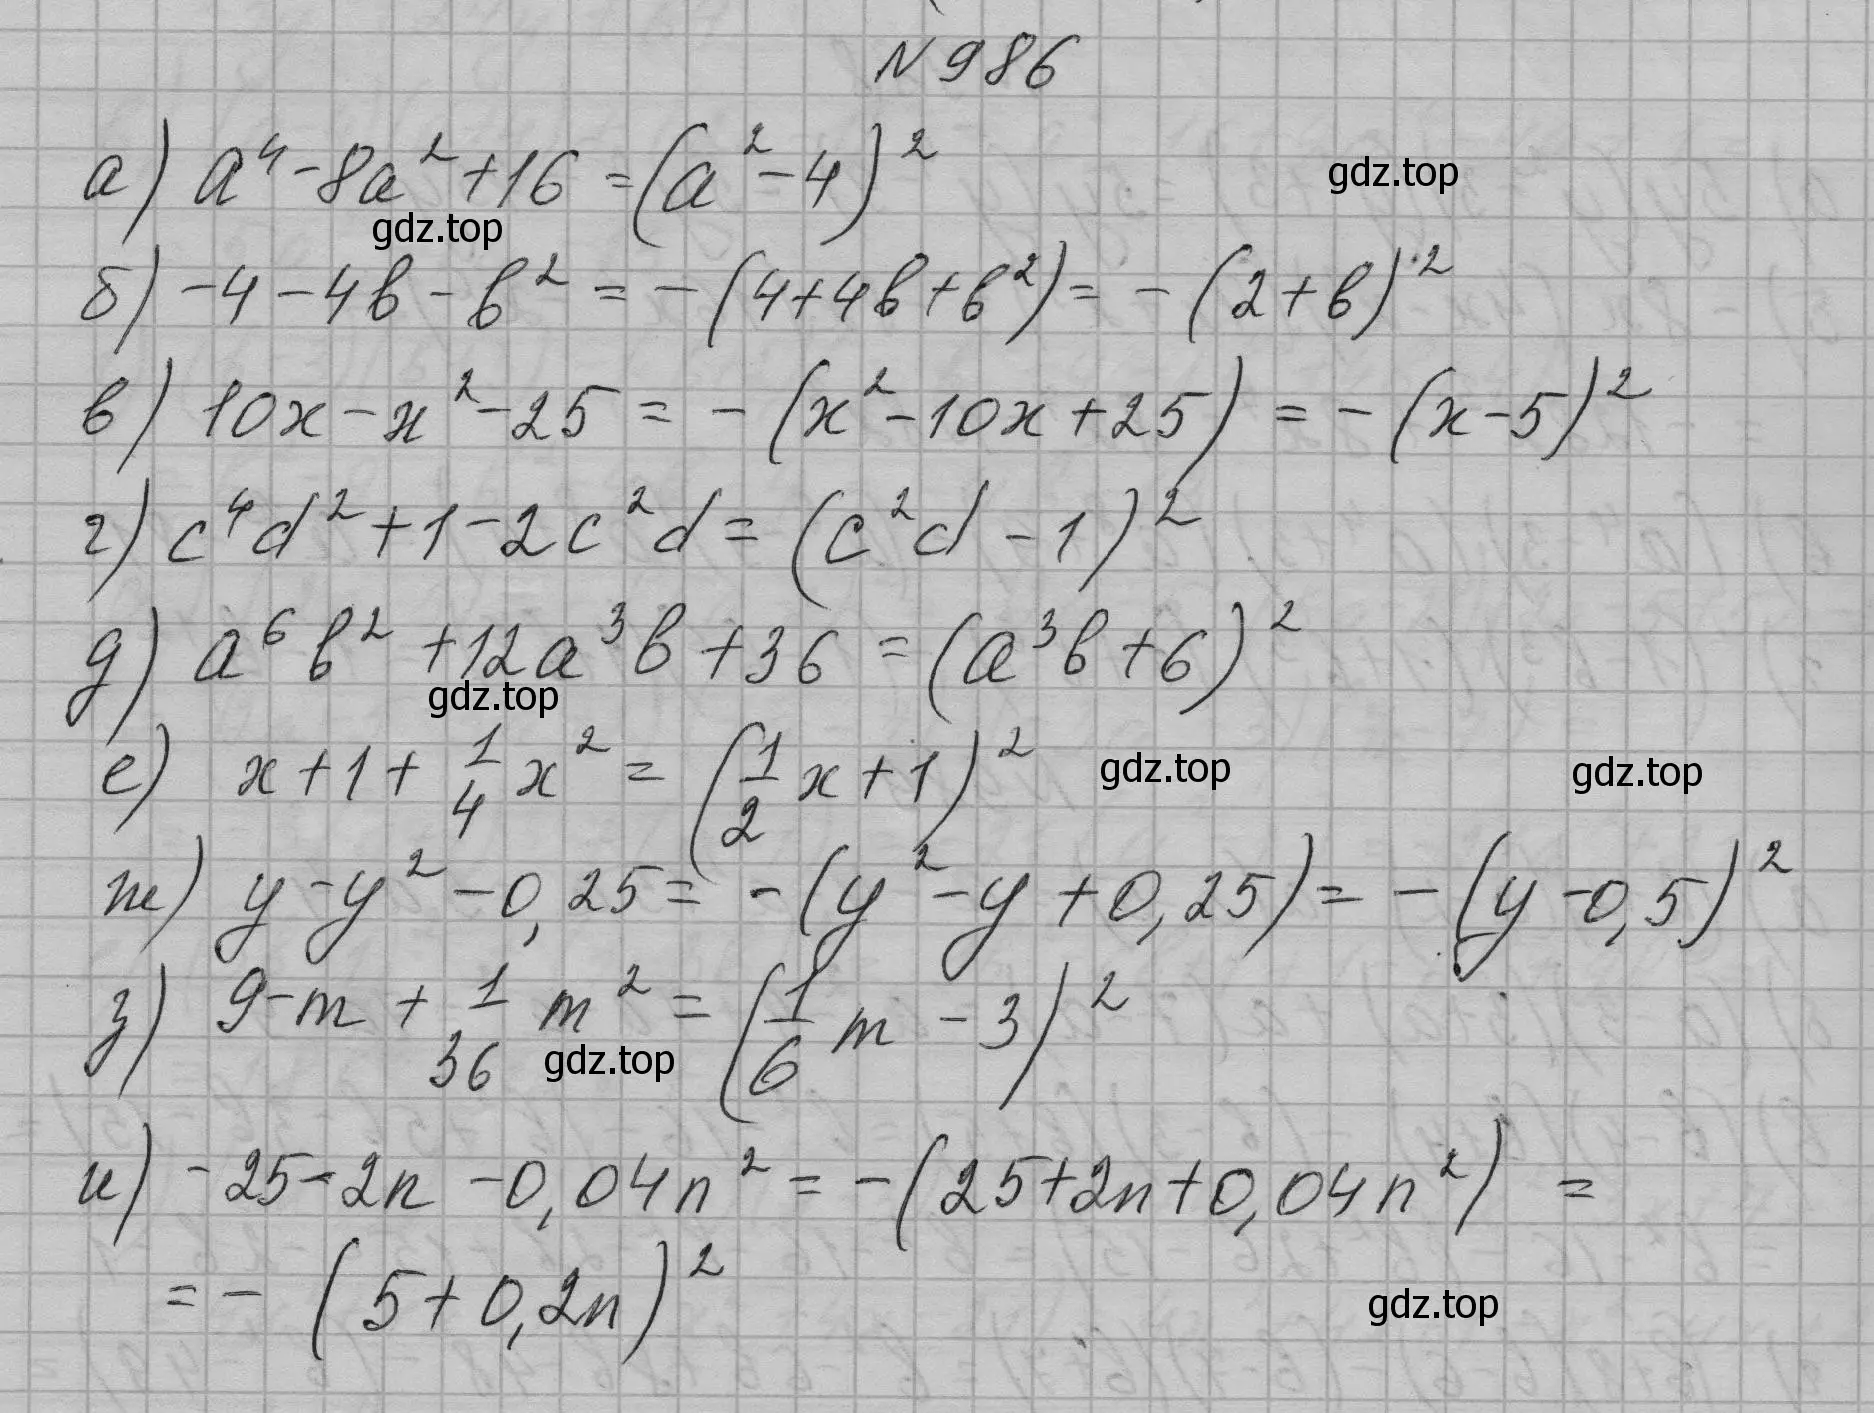 N 986
а) a⁴ - 8a² + 16 = (a² - 4)²
gdz.top
gdz.top
б) -4 - 4b - b² = -(4 + 4b + b²) = -(2 + b)²
в) 10x - x² - 25 = -(x² - 10x + 25) = -(x - 5)²
г) c⁴d² + 1 - 2c²d = (c²d - 1)²
д) a⁶b² + 12a³b + 36 = (a³b + 6)²
gdz.top
е) x + 1 + 1/4 x² = (1/2 x + 1)²
gdz.top
gdz.top
ж) y - y² - 0,25 = -(y² - y + 0,25) = -(y - 0,5)²
з) 9 - m + 1/36 m² = (1/6 m - 3)²
gdz.top
и) -25 - 2n - 0,04n² = -(25 + 2n + 0,04n²) =
= -(5 + 0,2n)²
gdz.top